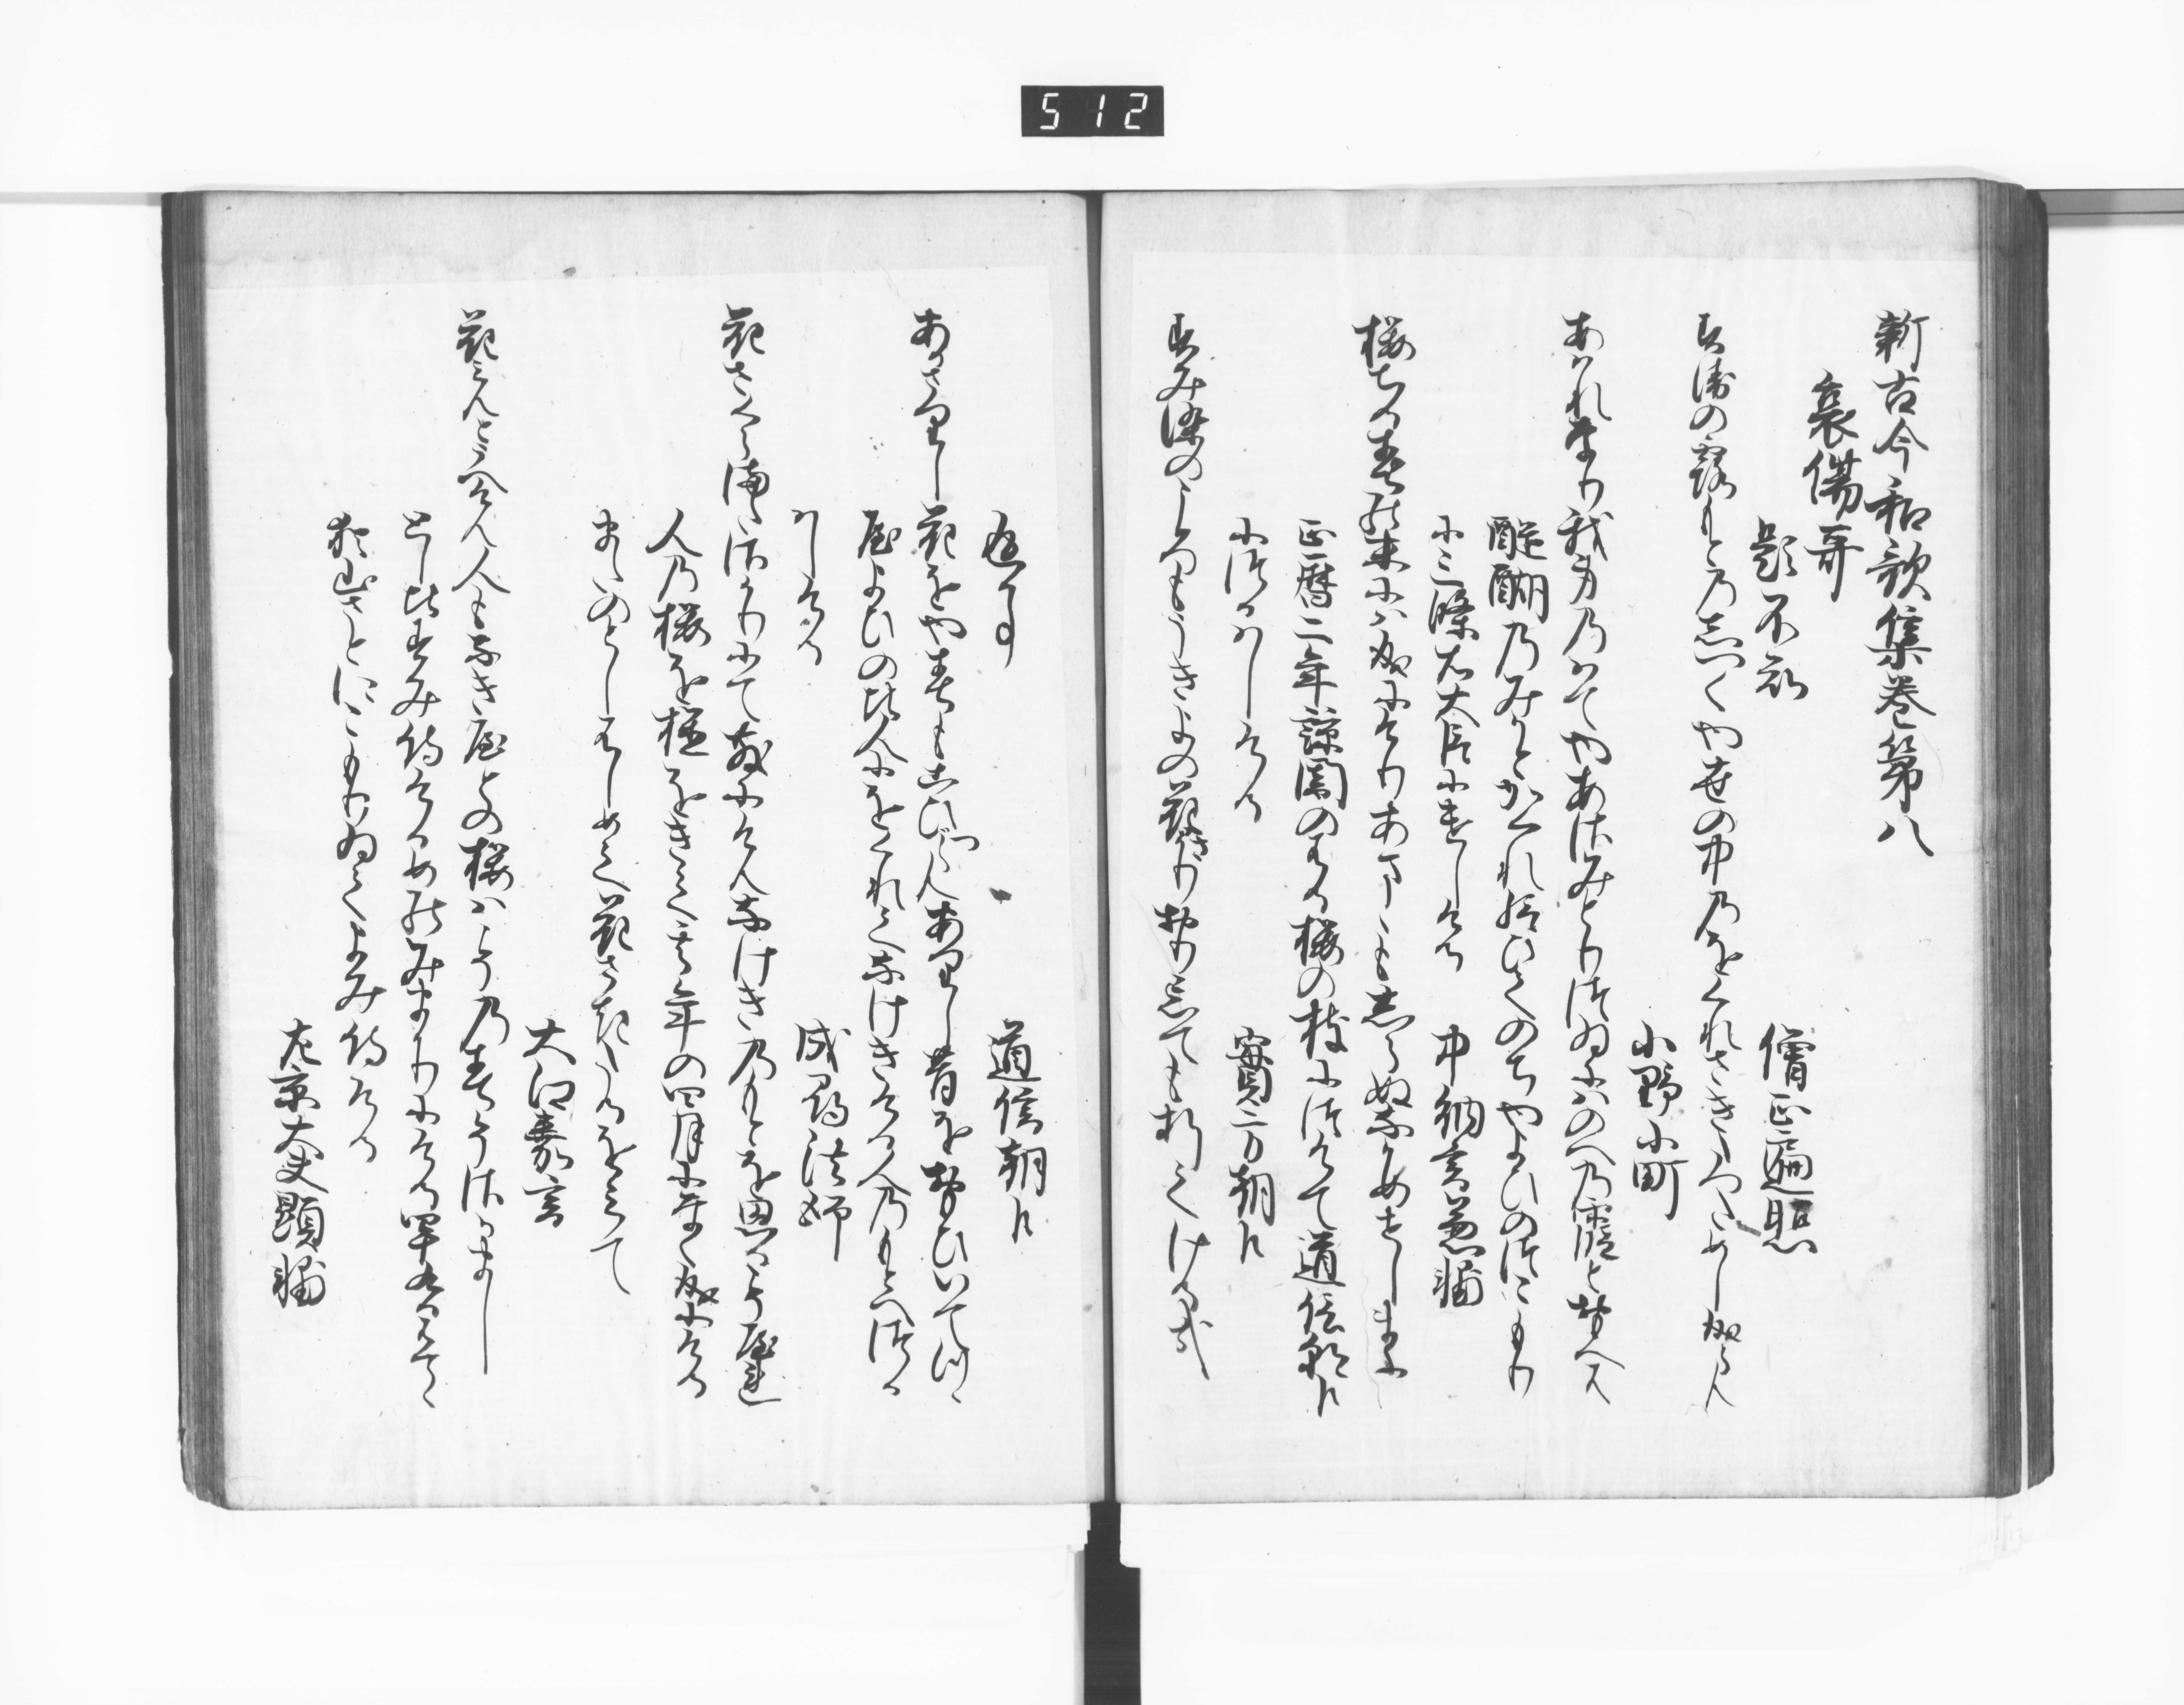 512
新古今和歌集巻第八
哀傷哥
題不知
僧正遍照
すゑの露もとのしつくや世の中のをくれさきたつためしなるらん
小野小町
あはれなり我身のはてやあさみとりつゐにはのへの霞と思へは
醍醐のみかとかくれ給ひてのちやよひのつこもり
に三條右大臣につかはしける
中納言兼輔
桜ちる春の末には成にけりあまゝもしらぬなかめせしまに
正暦二年諒闇のはる桜の枝につけて道信朝臣
につかはしける
實方朝臣
すみ染のころもうき世の花さかりおり忘ても折てけるかな
返事
道信朝臣
あかさりし花をや春もこひつらんありし昔を思ひいてつゝ
やよひの比人にをくれてなけきける人のもとへつか
はしける
成尋法師
花さくらまたさかりにて散にけんなけきのもとを思ひこそやれ
人の桜をうへをきて其年の四月になく成にける
又のとしはしめて花さきたるをみて
大江嘉言
花みんとうへけん人もなき宿の桜はこその春そさかまし
としころすみ侍ける女の身まかりにける四十九日はてゝ
猶山さとにこもりゐてよみ侍ける
左京大夫顕輔